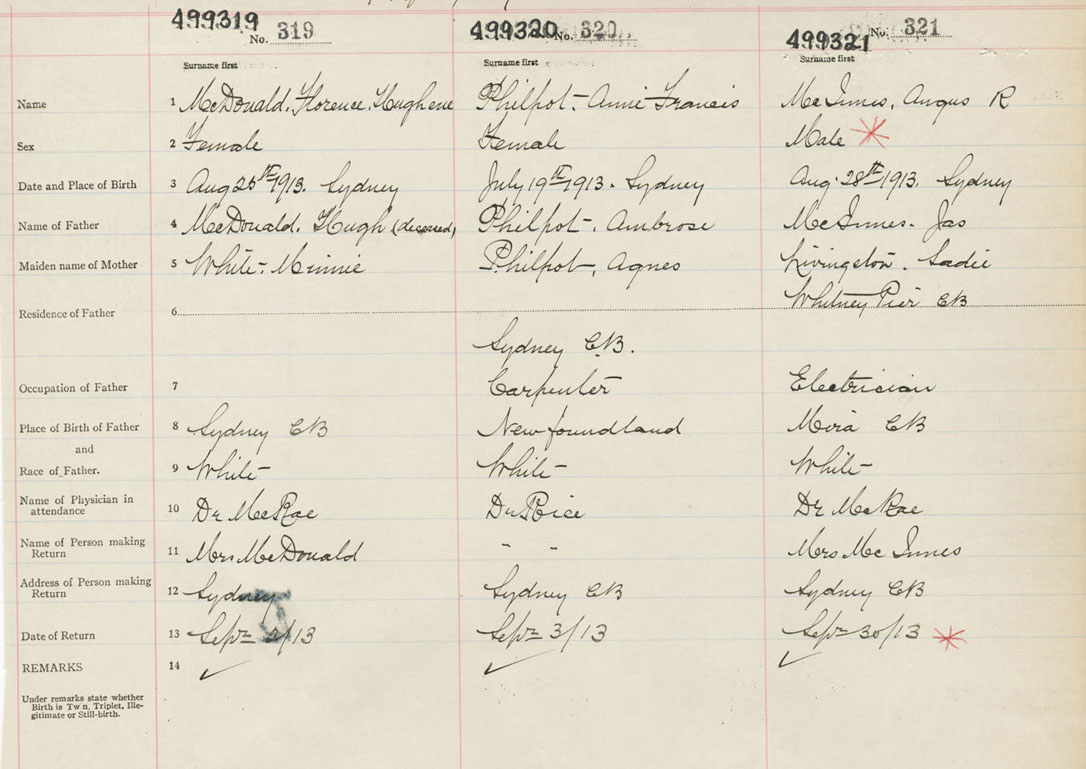 499319 No. 319 499320 No. 320 499321 No. 321
Surname first Surname first Surname first
Name 1 McDonald. Florence. Hughene Philpot- Annie Francis McInnes, Angus R
Sex 2 Female Female Male
Date and Place of Birth 3 Aug 25th 1913. Sydney July 19th 1913. Sydney Aug. 28th 1913. Sydney
Name of Father 4 McDonald. Hugh (deceased) Philpot-. Ambrose McInnes. Jas
Maiden name of Mother 5 White- Minnie Philpot, Agnes Livingston. Sadie
Whitney Pier CB
Residence of Father 6
Sydney C.B.
Occupation of Father 7 Carpenter Electrician
Place of Birth of Father 8 Sydney CB Newfoundland Mira CB
and
Race of Father. 9 White White White
Name of Physician in
attendance 10 Dr McRae Dr Rice Dr McRae
Name of Person making
Return 11 Mrs McDonald " " Mrs McInnes
Address of Person making
Return 12 Sydney Sydney CB Sydney CB
Date of Return 13 Sept /13 Sept 3/13 Sept 30/13
REMARKS 14 ✓ ✓ ✓
Under remarks state whether
Birth is Tw n, Triplet, Ille-
gitimate or Still-birth.